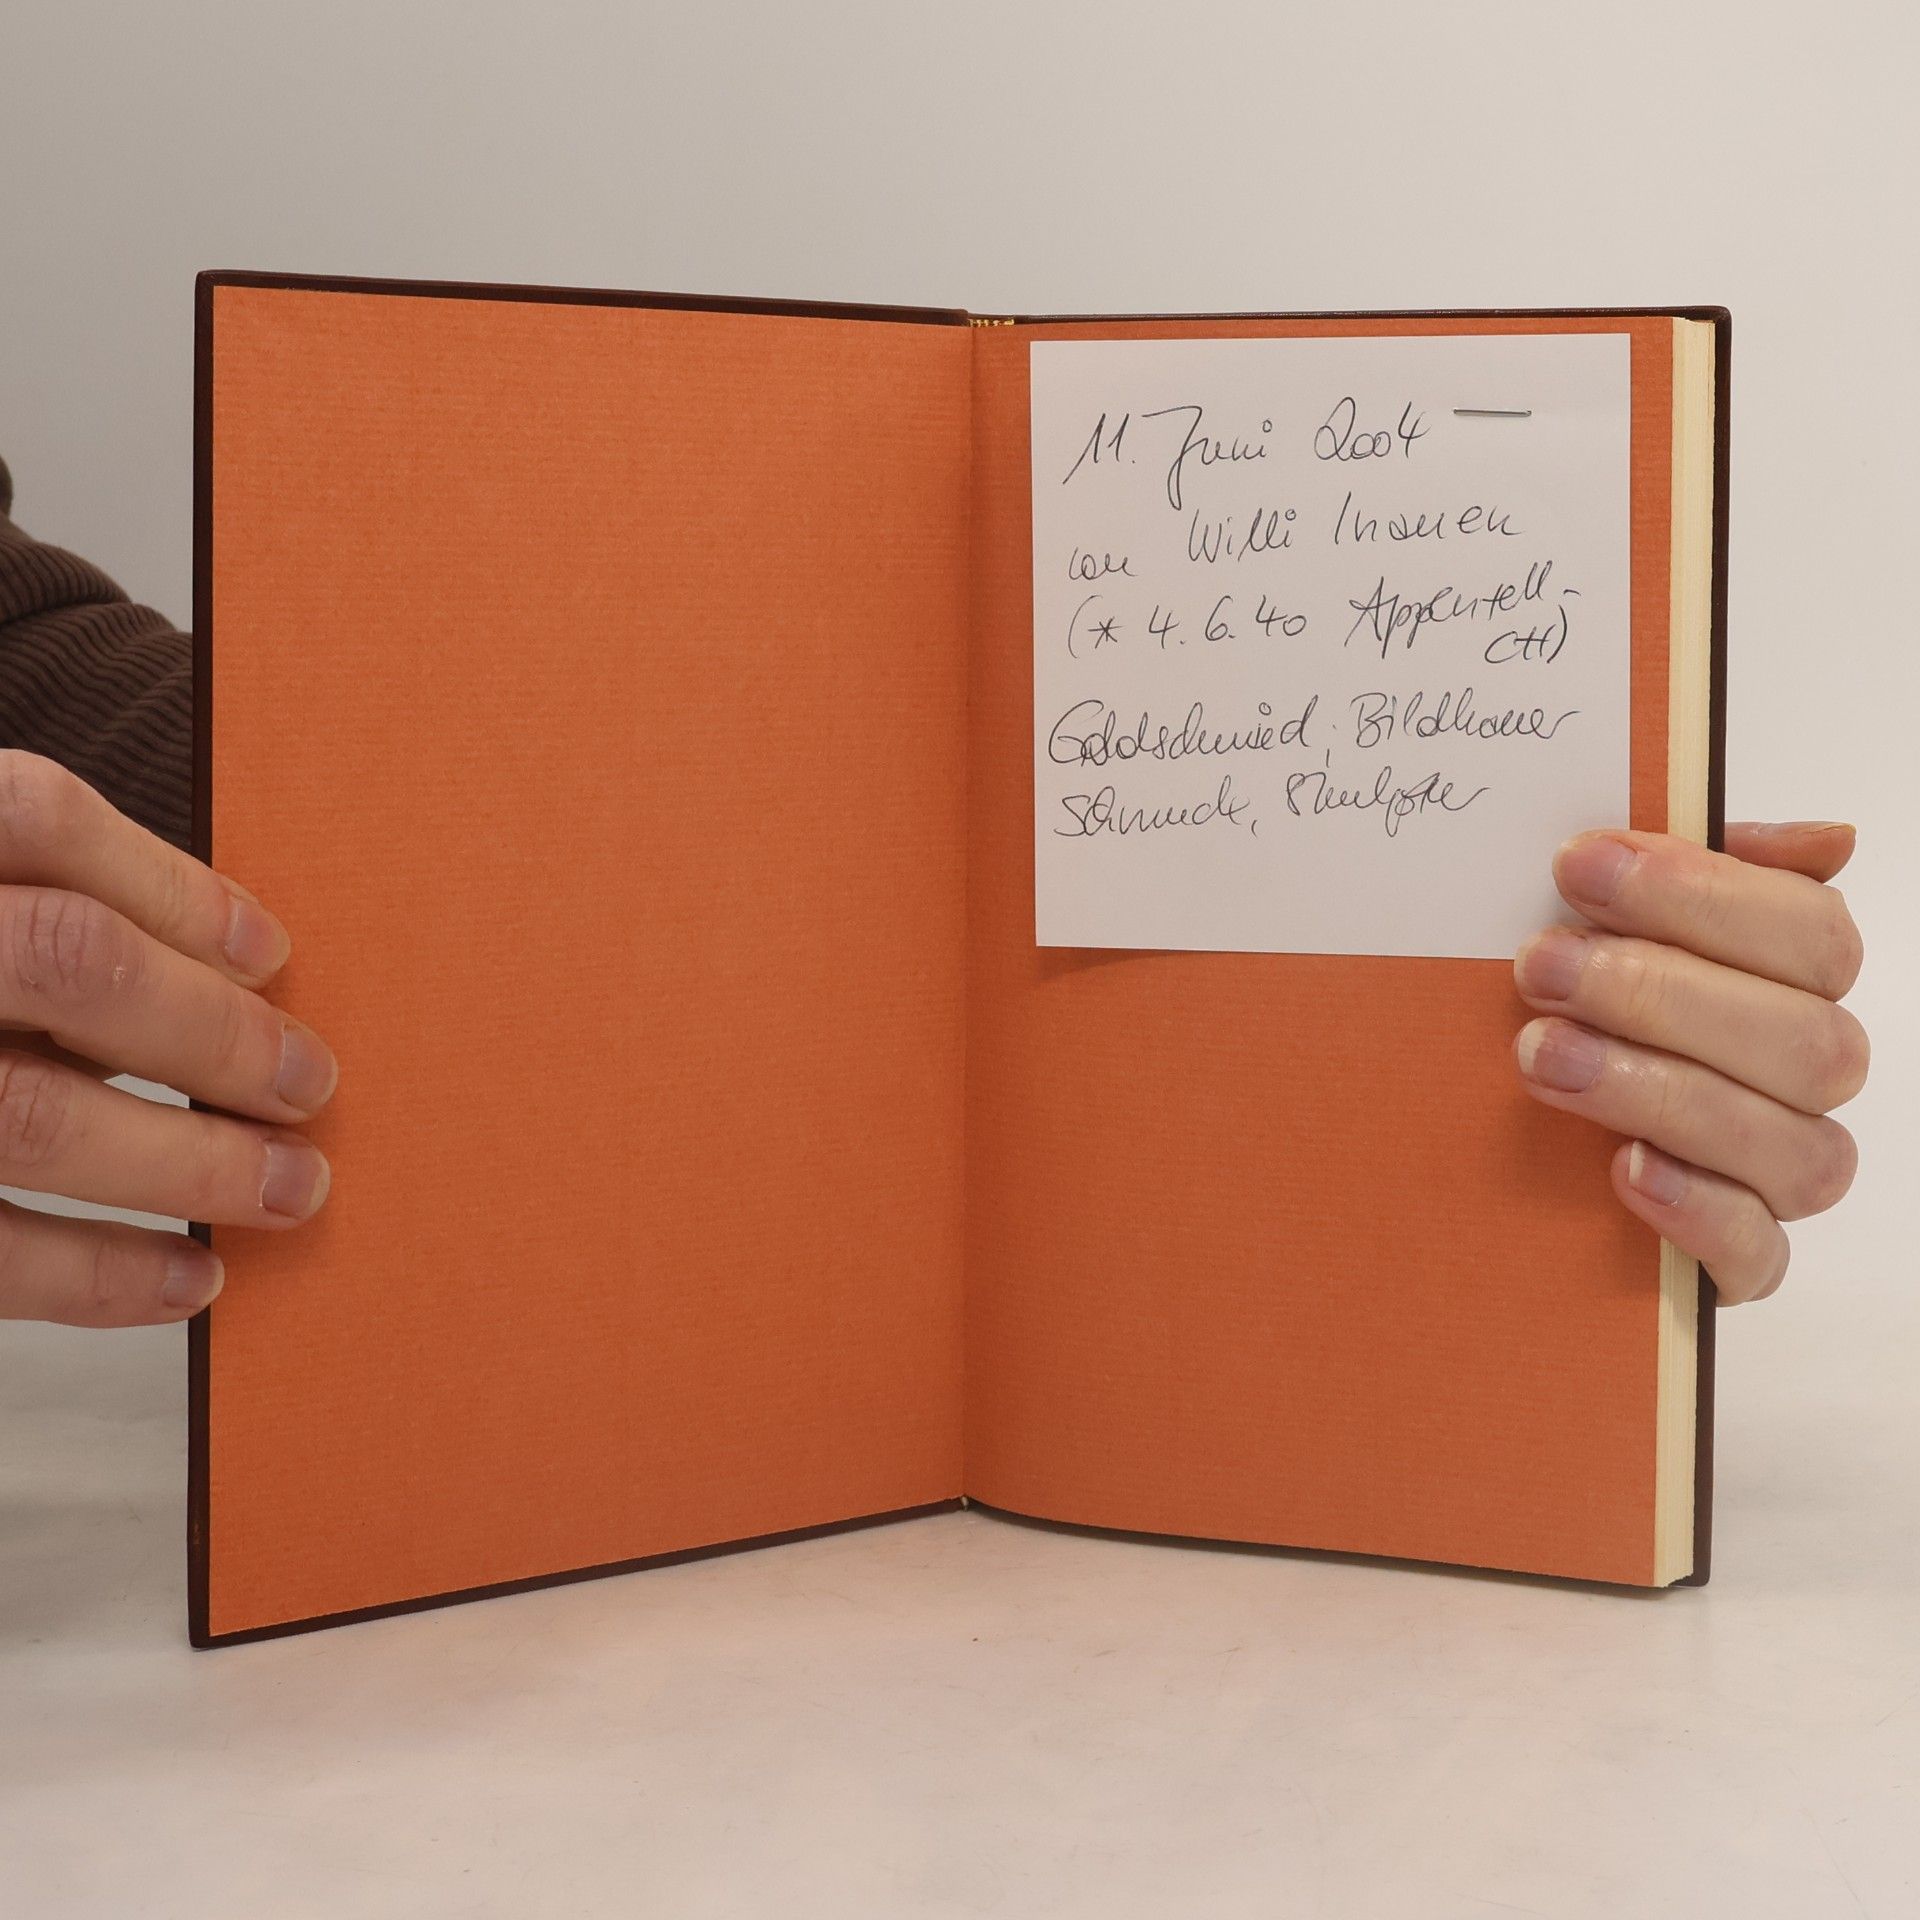 11. Juni 2004
von Willi Inauen
(* 4.6.40 Appenzell -
CH)
Goldschmied, Bildhauer
Schmuck, Skulptur